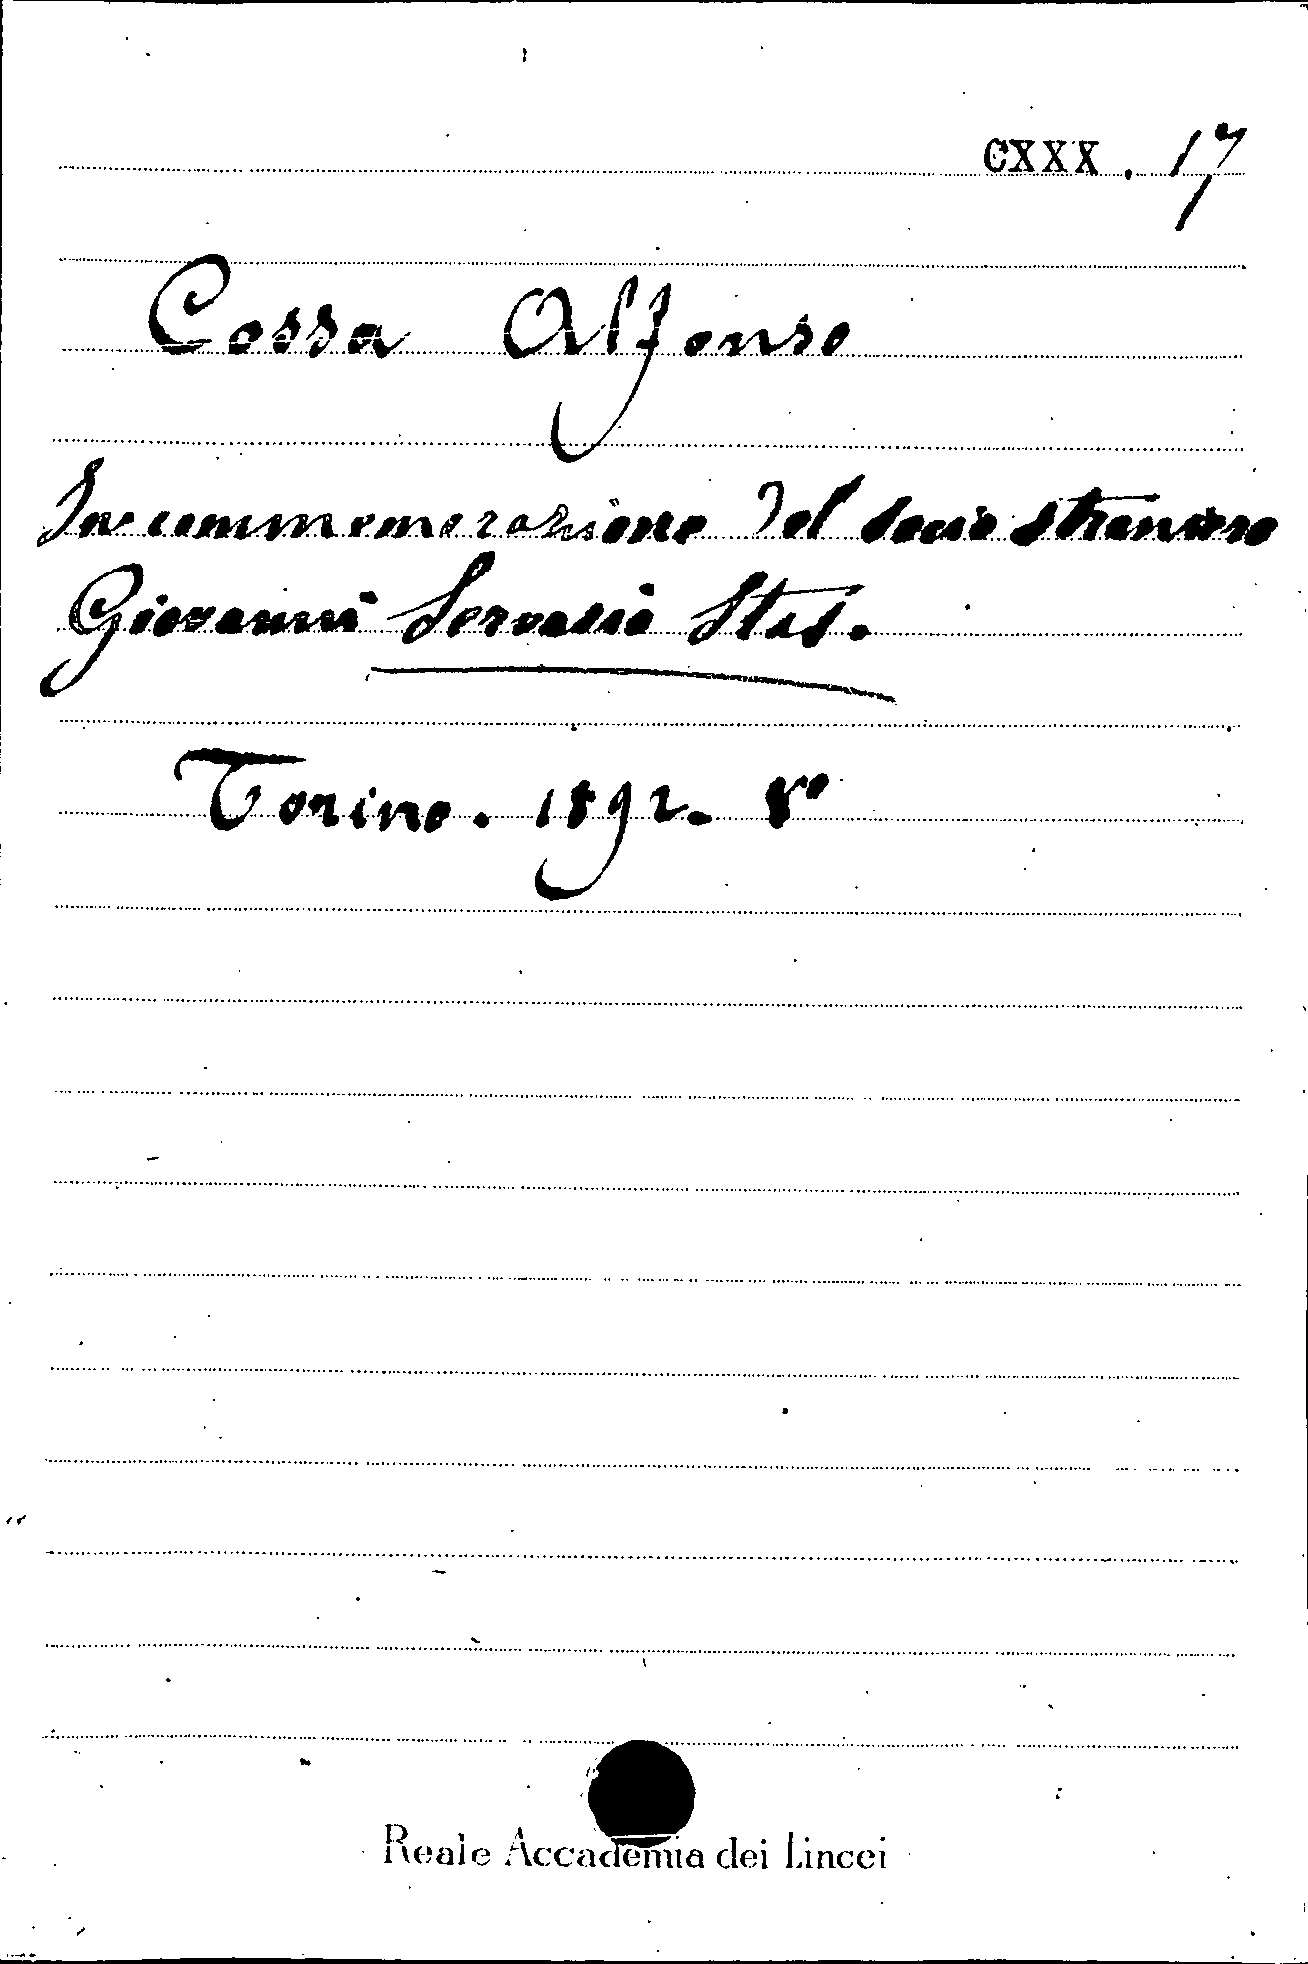 CXXX. 17
Cossa Alfonso
In commemorazione del socio straniero
Giovanni Servasio Stas.
Torino. 1892. 8º
Reale Accademia dei Lincei